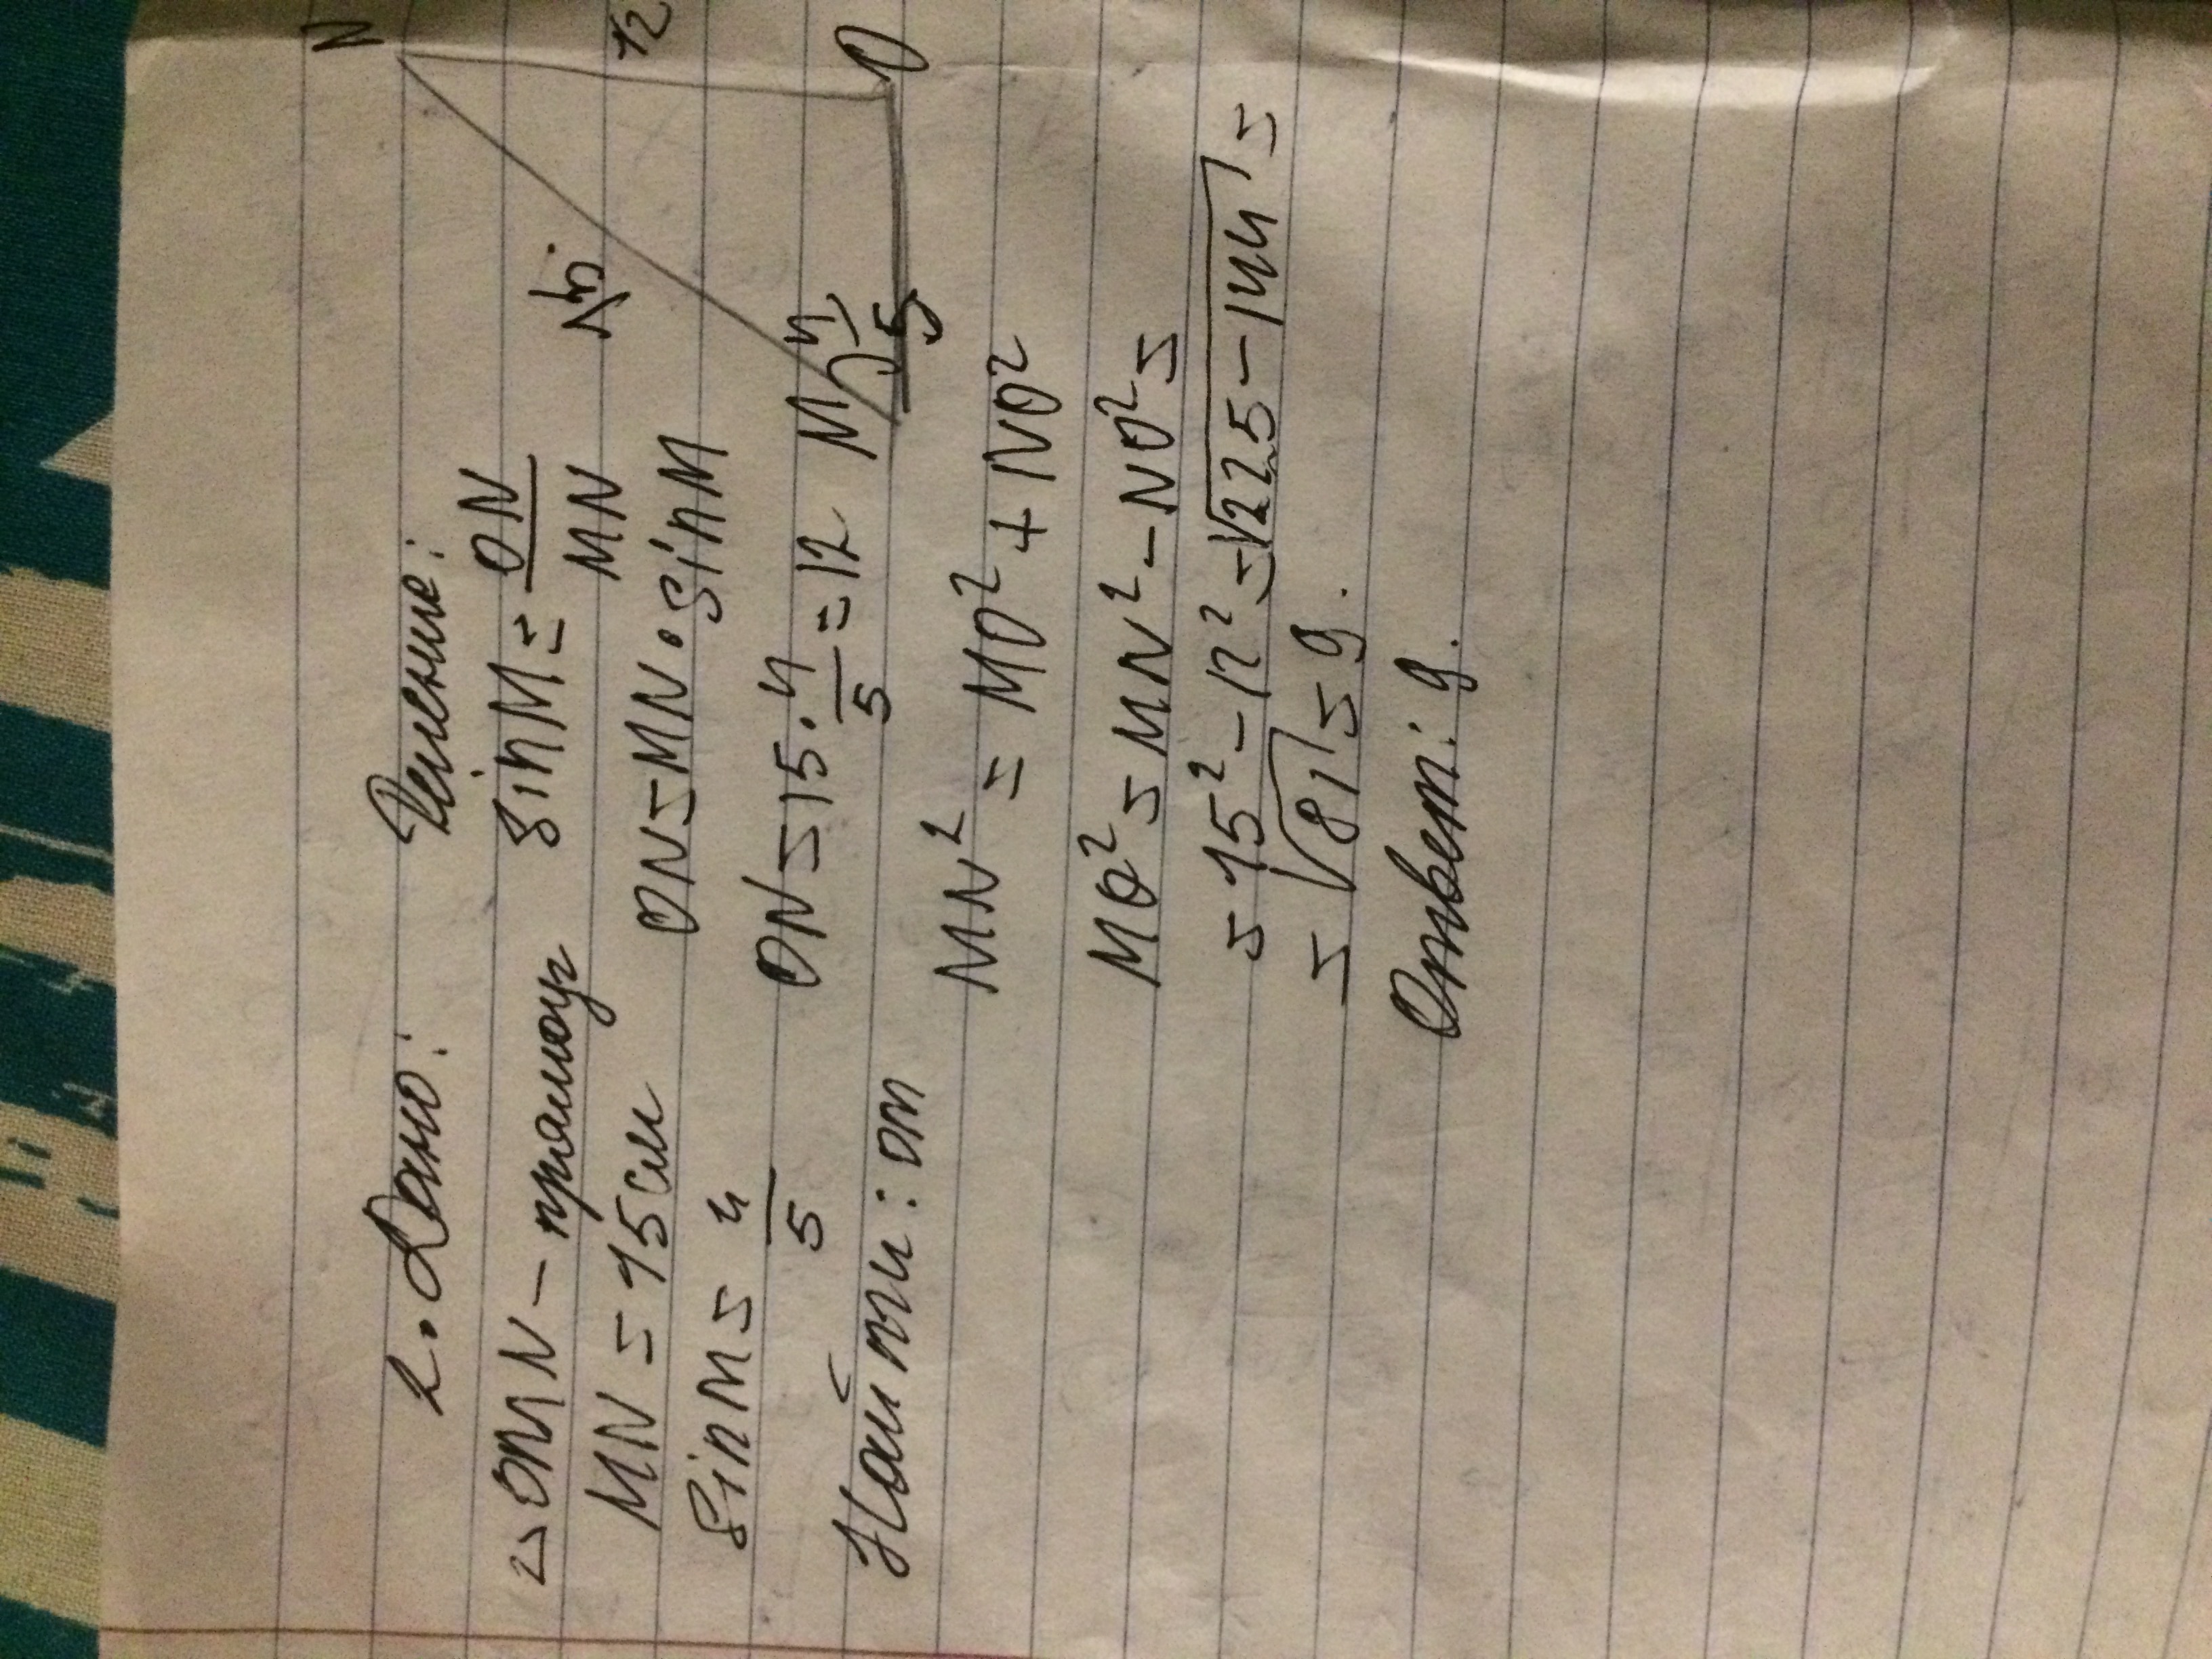 2. Дано:
△OMN - прямоуг
MN = 15 см
sin M = 4/5
Найти: OM
Решение:
sin M = ON/MN
ON = MN · sin M
ON = 15 · 4/5 = 12
MN² = MO² + NO²
MO² = MN² - NO² =
= 15² - 12² = √225 - 144 =
= √81 = 9.
Ответ: 9.
N
12
O
15
M
4/5